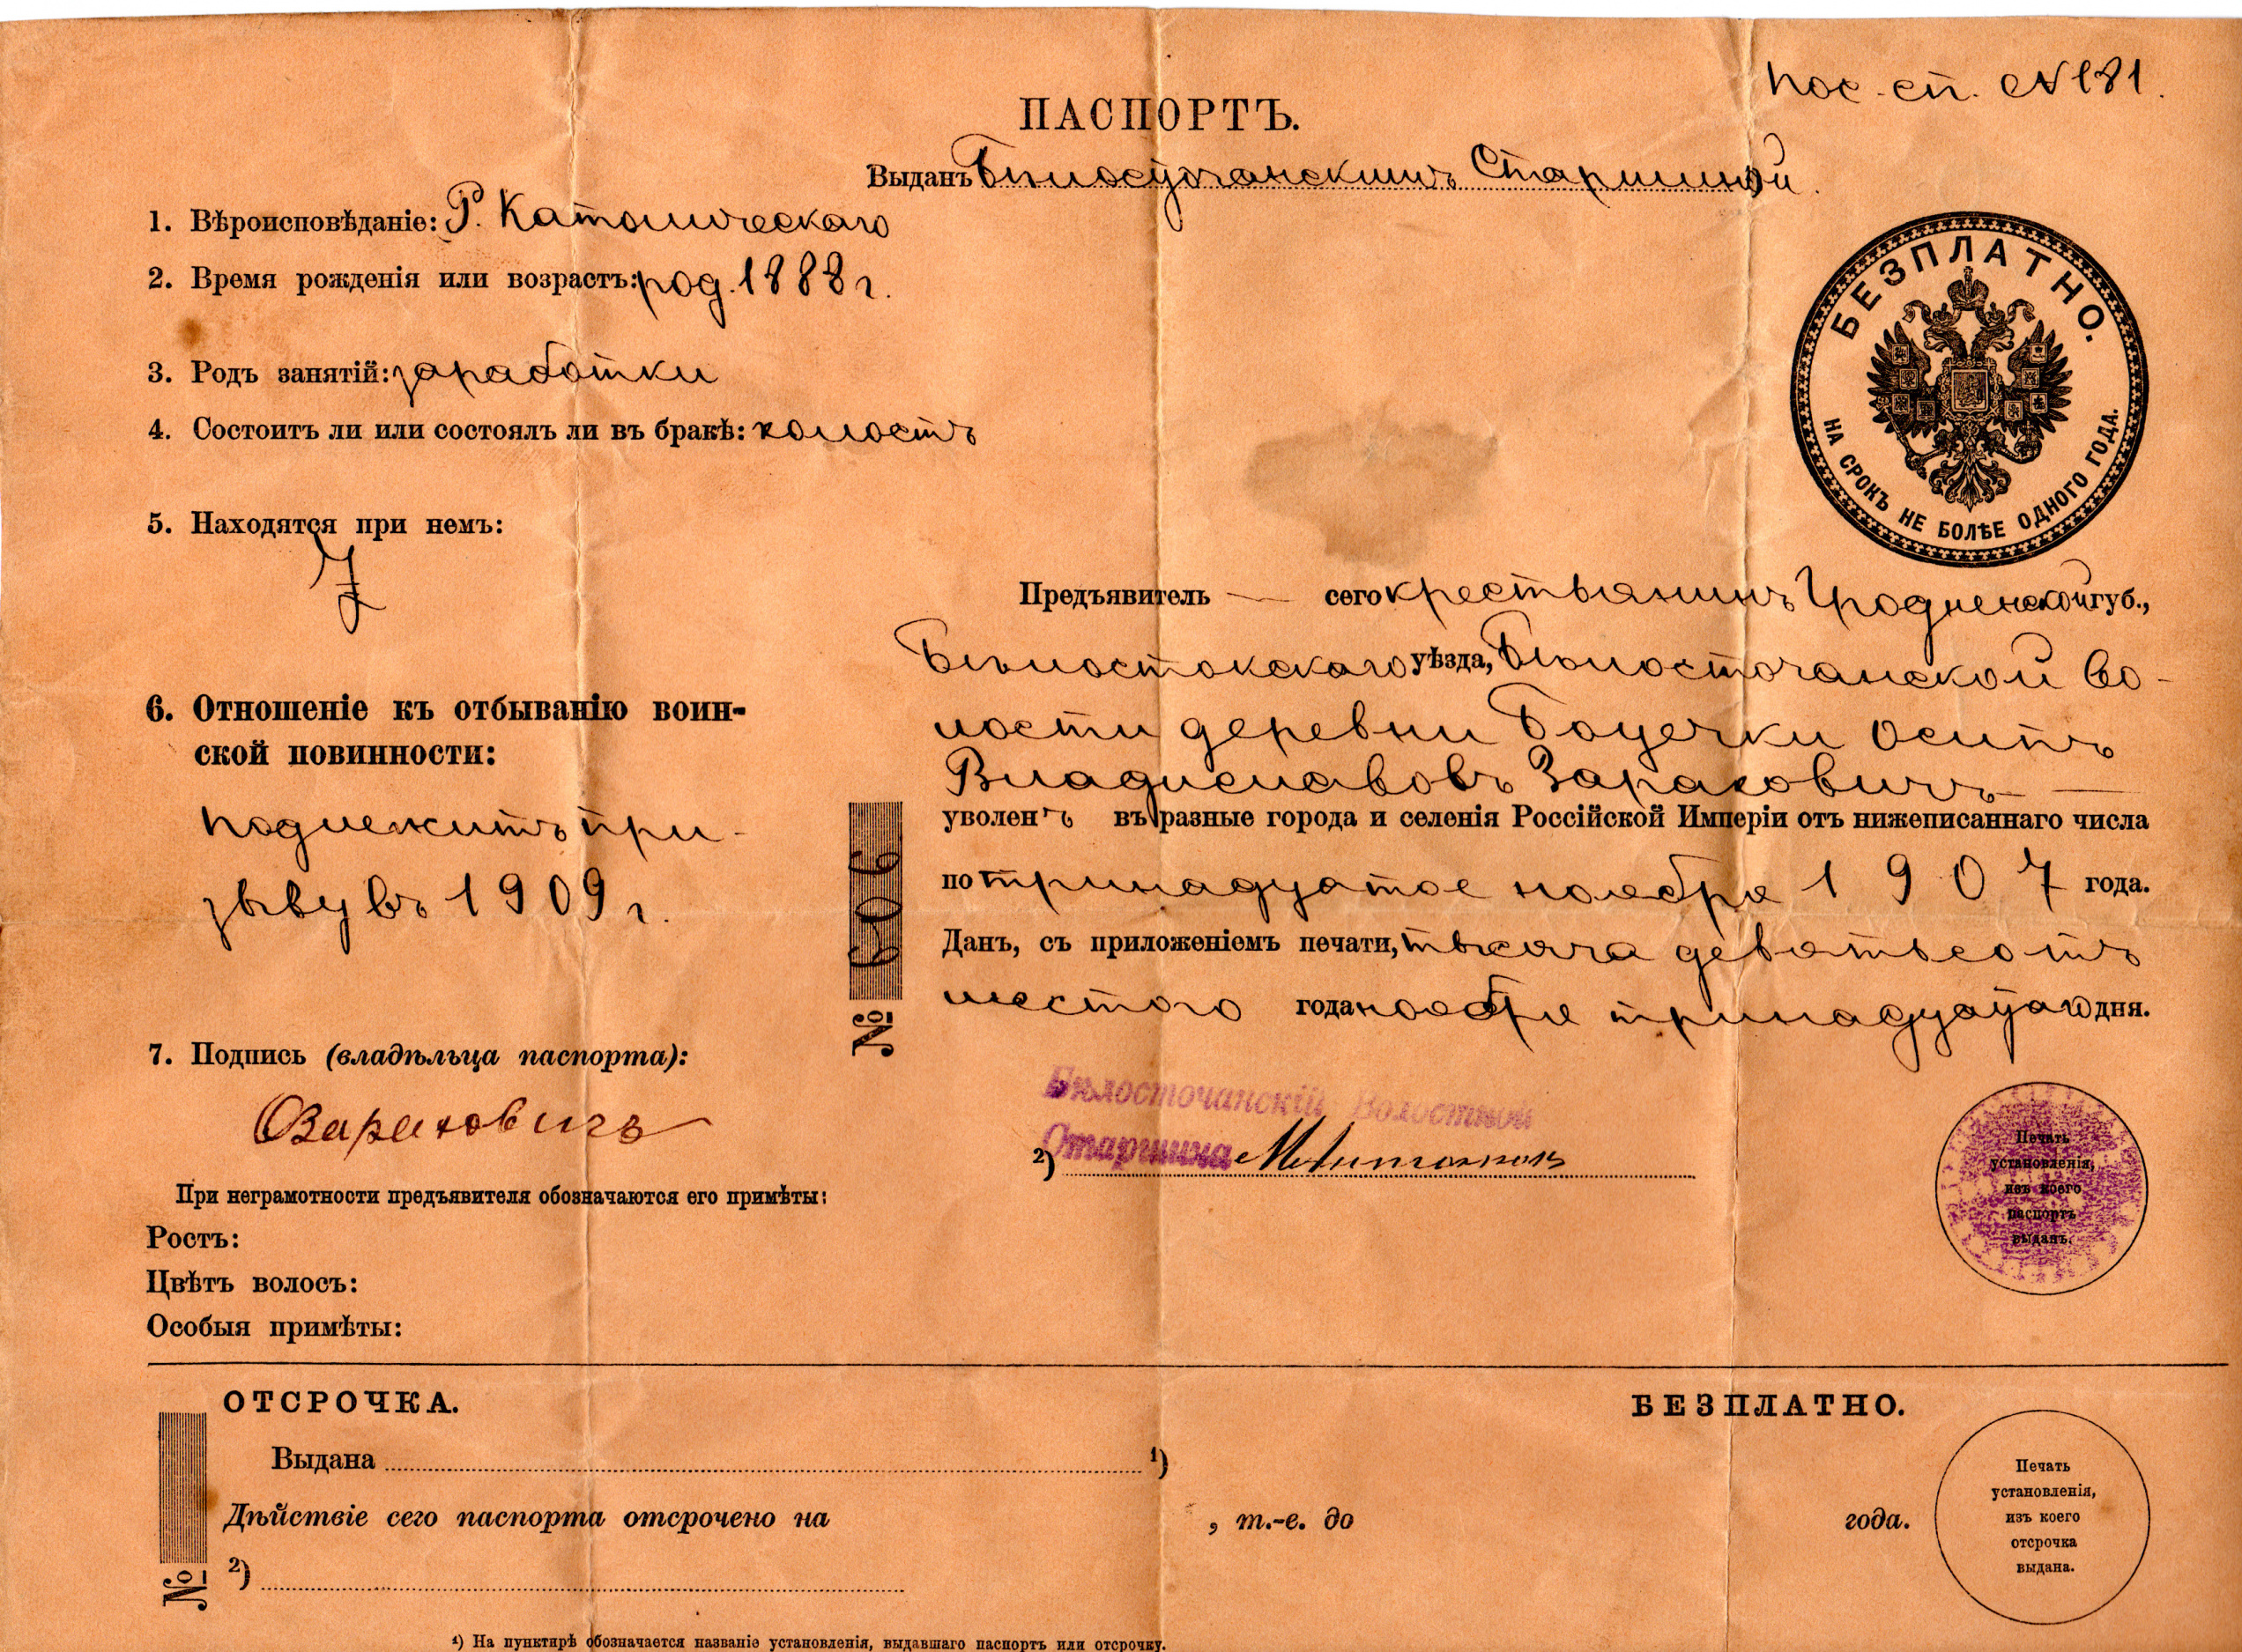 пос. сп. №181.
ПАСПОРТЪ.
Выданъ Бѣлосточанскимъ Старшиной.
1. Вѣроисповѣданіе: Р. Католическаго
2. Время рожденія или возрастъ: род. 1888 г.
3. Родъ занятій: заработки
4. Состоитъ ли или состоялъ ли въ бракѣ: холостъ
5. Находятся при немъ:
БЕЗПЛАТНО.
НА СРОКЪ НЕ БОЛѢЕ ОДНОГО ГОДА.
Предъявитель — сего крестьянинъ Гродненской губ.,
Бѣлостокскаго уѣзда, Бѣлосточанской во-
лости деревни Бацечки Осипъ
Владиславовъ Зараковичъ
уволенъ въ разные города и селенія Россійской Имперіи отъ нижеписаннаго числа
по тринадцатое ноября 1907 года.
Данъ, съ приложеніемъ печати, тысяча девятьсотъ
шестого года ноября тринадцатаго дня.
6. Отношеніе къ отбыванію воин-
ской повинности:
подлежитъ при-
зыву въ 1909 г.
№ 606
7. Подпись (владѣльца паспорта):
ОЗараковичъ
Бѣлосточанскій Волостной
2) Старшина
Печать
установленія,
изъ коего
паспортъ
выданъ.
При неграмотности предъявителя обозначаются его примѣты:
Ростъ:
Цвѣтъ волосъ:
Особыя примѣты:
ОТСРОЧКА.
БЕЗПЛАТНО.
Выдана 1)
Дѣйствіе сего паспорта отсрочено на , т.-е. до года.
2)
№
Печать
установленія,
изъ коего
отсрочка
выдана.
1) На пунктирѣ обозначается названіе установленія, выдавшаго паспортъ или отсрочку.